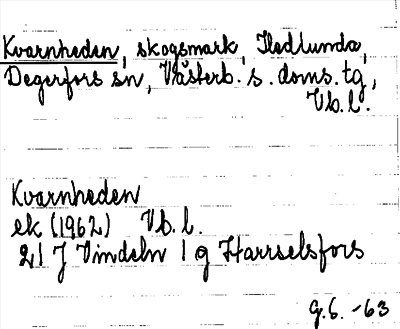 Kvarnheden, skogsmark, Hedlunda,
Degerfors sn, Västerb. s. doms. tg,
Vb. l.
Kvarnheden
ek (1962) Vb. l.
21 J Vindeln 1 g Harrselsfors
G. G. -63